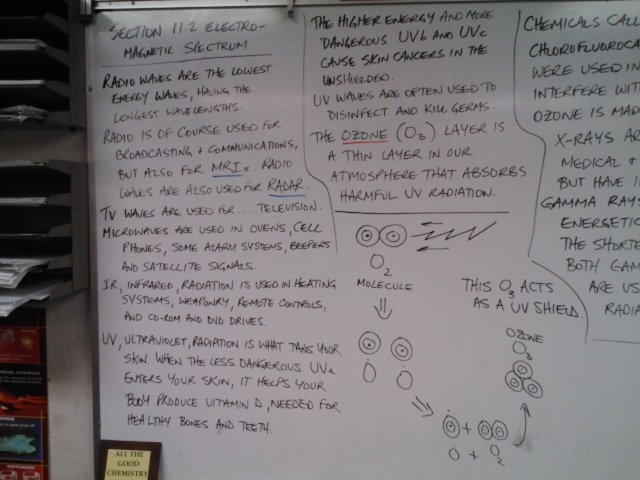 SECTION 11.2 ELECTRO-
MAGNETIC SPECTRUM
RADIO WAVES ARE THE LOWEST
ENERGY WAVES, HAVING THE
LONGEST WAVELENGTHS.
RADIO IS OF COURSE USED FOR
BROADCASTING + COMMUNICATIONS,
BUT ALSO FOR MRIs. RADIO
WAVES ARE ALSO USED FOR RADAR.
TV WAVES ARE USED FOR .... TELEVISION.
MICROWAVES ARE USED IN OVENS, CELL
PHONES, SOME ALARM SYSTEMS, BEEPERS
AND SATELLITE SIGNALS.
IR, INFRARED, RADIATION IS USED IN HEATING
SYSTEMS, WEAPONRY, REMOTE CONTROLS,
AND CD-ROM AND DVD DRIVES.
UV, ULTRAVIOLET, RADIATION IS WHAT TANS YOUR
SKIN. WHEN THE LESS DANGEROUS UVa
ENTERS YOUR SKIN, IT HELPS YOUR
BODY PRODUCE VITAMIN D, NEEDED FOR
HEALTHY BONES AND TEETH.
THE HIGHER ENERGY AND MORE
DANGEROUS UVb AND UVc
CAUSE SKIN CANCERS IN THE
UNSHIELDED.
UV WAVES ARE OFTEN USED TO
DISINFECT AND KILL GERMS.
THE OZONE (O3) LAYER IS
A THIN LAYER IN OUR
ATMOSPHERE THAT ABSORBS
HARMFUL UV RADIATION.
O2
MOLECULE
O O
O + O2
OZONE
O3
THIS O3 ACTS
AS A UV SHIELD.
CHEMICALS CALL
CHLOROFLUOROCA
WERE USED IN
INTERFERE WIT
OZONE IS MAD
X-RAYS AR
MEDICAL +
BUT HAVE
GAMMA RAYS
ENERGETIC
THE SHORTE
BOTH GAM
ARE US
RADIA
ALL THE
GOOD
CHEMISTRY
DIFFUSION